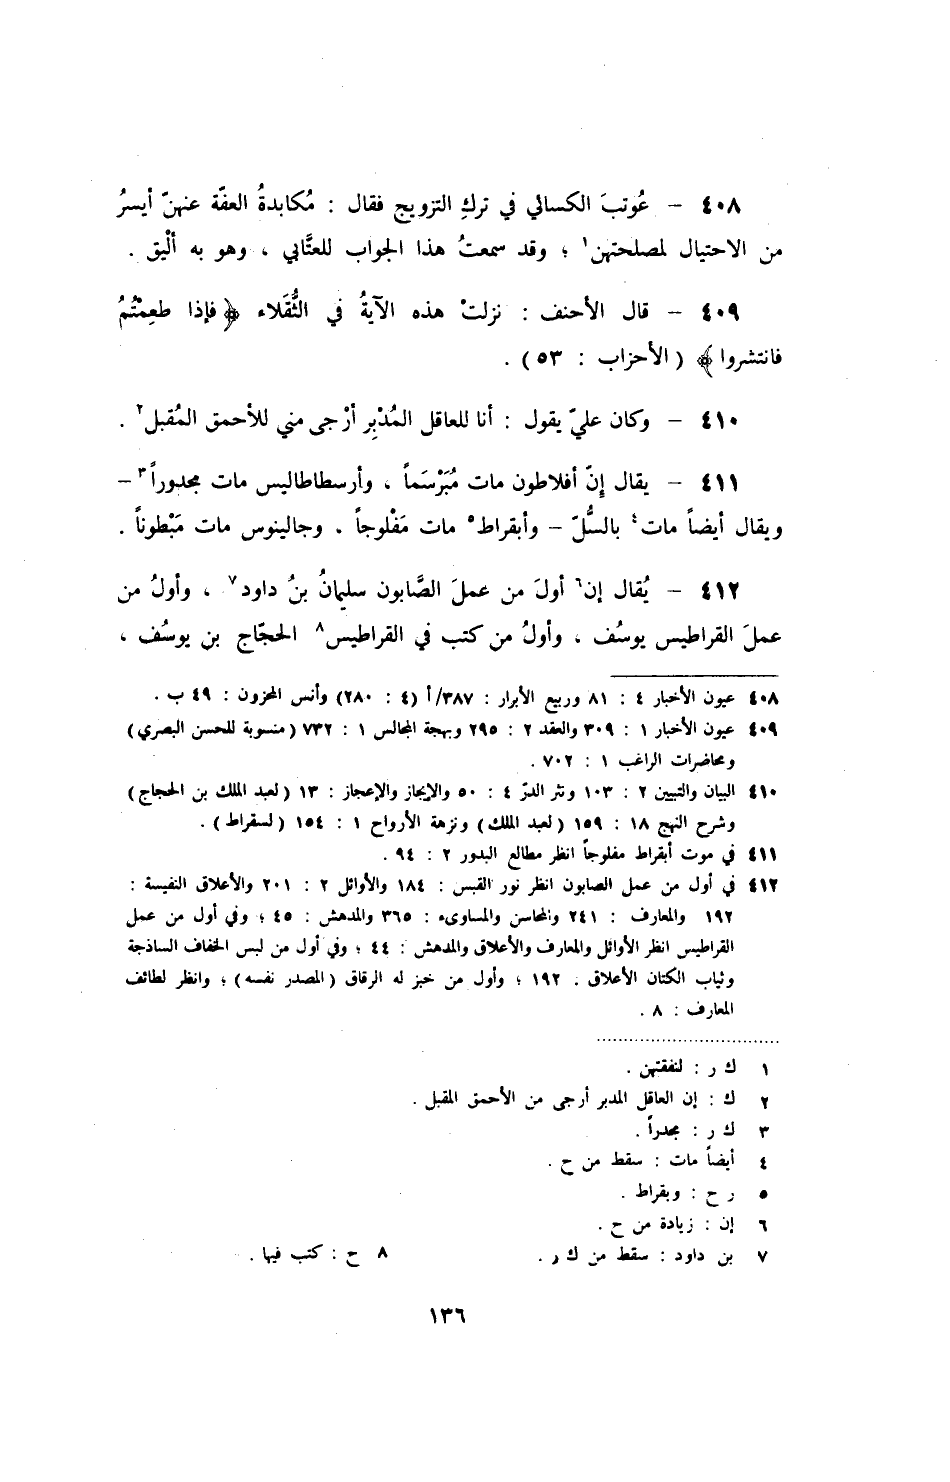 ٤٠٨ – عُوتبَ الكسائي في تركِ التزويج فقال : مُكابدةُ العفّة عنهنّ أيسرُ
من الاحتيال لمصلحتهن¹ ؛ وقد سمعتُ هذا الجواب للعتَّابي ، وهو به ألْيق .
٤٠٩ – قال الأحنف : نزلتْ هذه الآيةُ في الثُّقَلاء ﴿فإذا طعِمْتُمُ
فانتشروا﴾ (الأحزاب : ٥٣) .
٤١٠ – وكان عليّ يقول : أنا للعاقل المُدْبِر أرْجى مني للأحمق المُقبل² .
٤١١ – يقال إنّ أفلاطون مات مُبَرْسَماً ، وأرسطاطاليس مات مجدوراً³ –
ويقال أيضاً مات⁴ بالسُّلّ – وأبقراط⁵ مات مَفْلوجاً . وجالينوس مات مَبْطوناً .
٤١٢ – يُقال إن⁶ أولَ من عملَ الصَّابون سليمانُ بنُ داود⁷ ، وأولُ من
عملَ القراطيس يوسُف ، وأولُ من كتب في القراطيس⁸ الحجّاج بن يوسُف ،
٤٠٨ عيون الأخبار ٤ : ٨١ وربيع الأبرار : ٣٨٧/أ (٤ : ٢٨٠) وأنس المحزون : ٤٩ ب .
٤٠٩ عيون الأخبار ١ : ٣٠٩ والعقد ٢ : ٢٩٥ وبهجة المجالس ١ : ٧٣٢ (منسوبة للحسن البصري)
ومحاضرات الراغب ١ : ٧٠٢ .
٤١٠ البيان والتبيين ٢ : ١٠٣ ونثر الدرّ ٤ : ٥٠ والإيجاز والإعجاز : ١٣ (لعبد الملك بن الحجاج)
وشرح النهج ١٨ : ١٥٩ (لعبد الملك) ونزهة الأرواح ١ : ١٥٤ (لسقراط) .
٤١١ في موت أبقراط مفلوجاً انظر مطالع البدور ٢ : ٩٤ .
٤١٢ في أول من عمل الصابون انظر نور القبس : ١٨٤ والأوائل ٢ : ٢٠١ والأعلاق النفيسة :
١٩٢ والمعارف : ٢٤١ والمحاسن والمساوىء : ٣٦٥ والمدهش : ٤٥ ؛ وفي أول من عمل
القراطيس انظر الأوائل والمعارف والأعلاق والمدهش : ٤٤ ؛ وفي أول من لبس الخفاف الساذجة
وثياب الكتان الأعلاق . ١٩٢ ؛ وأول من خبز له الرقاق (المصدر نفسه) ؛ وانظر لطائف
المعارف : ٨ .
١ ك ر : لنفقتهن .
٢ ك : إن العاقل المدبر أرجى من الأحمق المقبل .
٣ ك ر : مجدراً .
٤ أيضاً مات : سقط من ح .
٥ ر ح : وبقراط .
٦ إن : زيادة من ح .
٧ بن داود : سقط من ك ر . ٨ ح : كتب فيها .
١٣٦